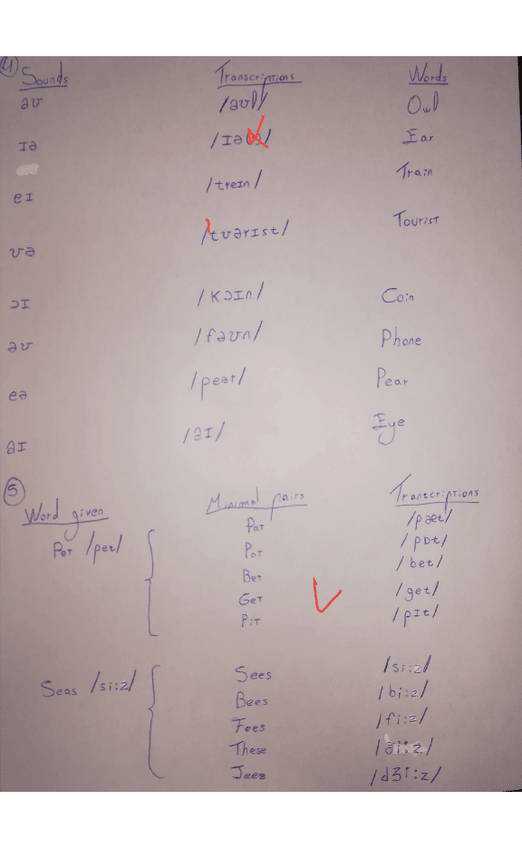 4 Sounds Transcriptions Words
əʊ /əʊl/ Owl
ɪə Ear
eɪ /treɪn/ Train
ʊə /tʊərɪst/ Tourist
ɔɪ /kɔɪn/ Coin
əʊ /fəʊn/ Phone
eə /peər/ Pear
əɪ /əɪ/ Eye
5 Word given Minimal pairs Transcriptions
Pet /pet/ Pat /pæt/
Pot /pɒt/
Bet /bet/
Get /get/
Pit /pɪt/
Seas /si:z/ Sees /si:z/
Bees /bi:z/
Fees /fi:z/
These
Jeez /dʒi:z/